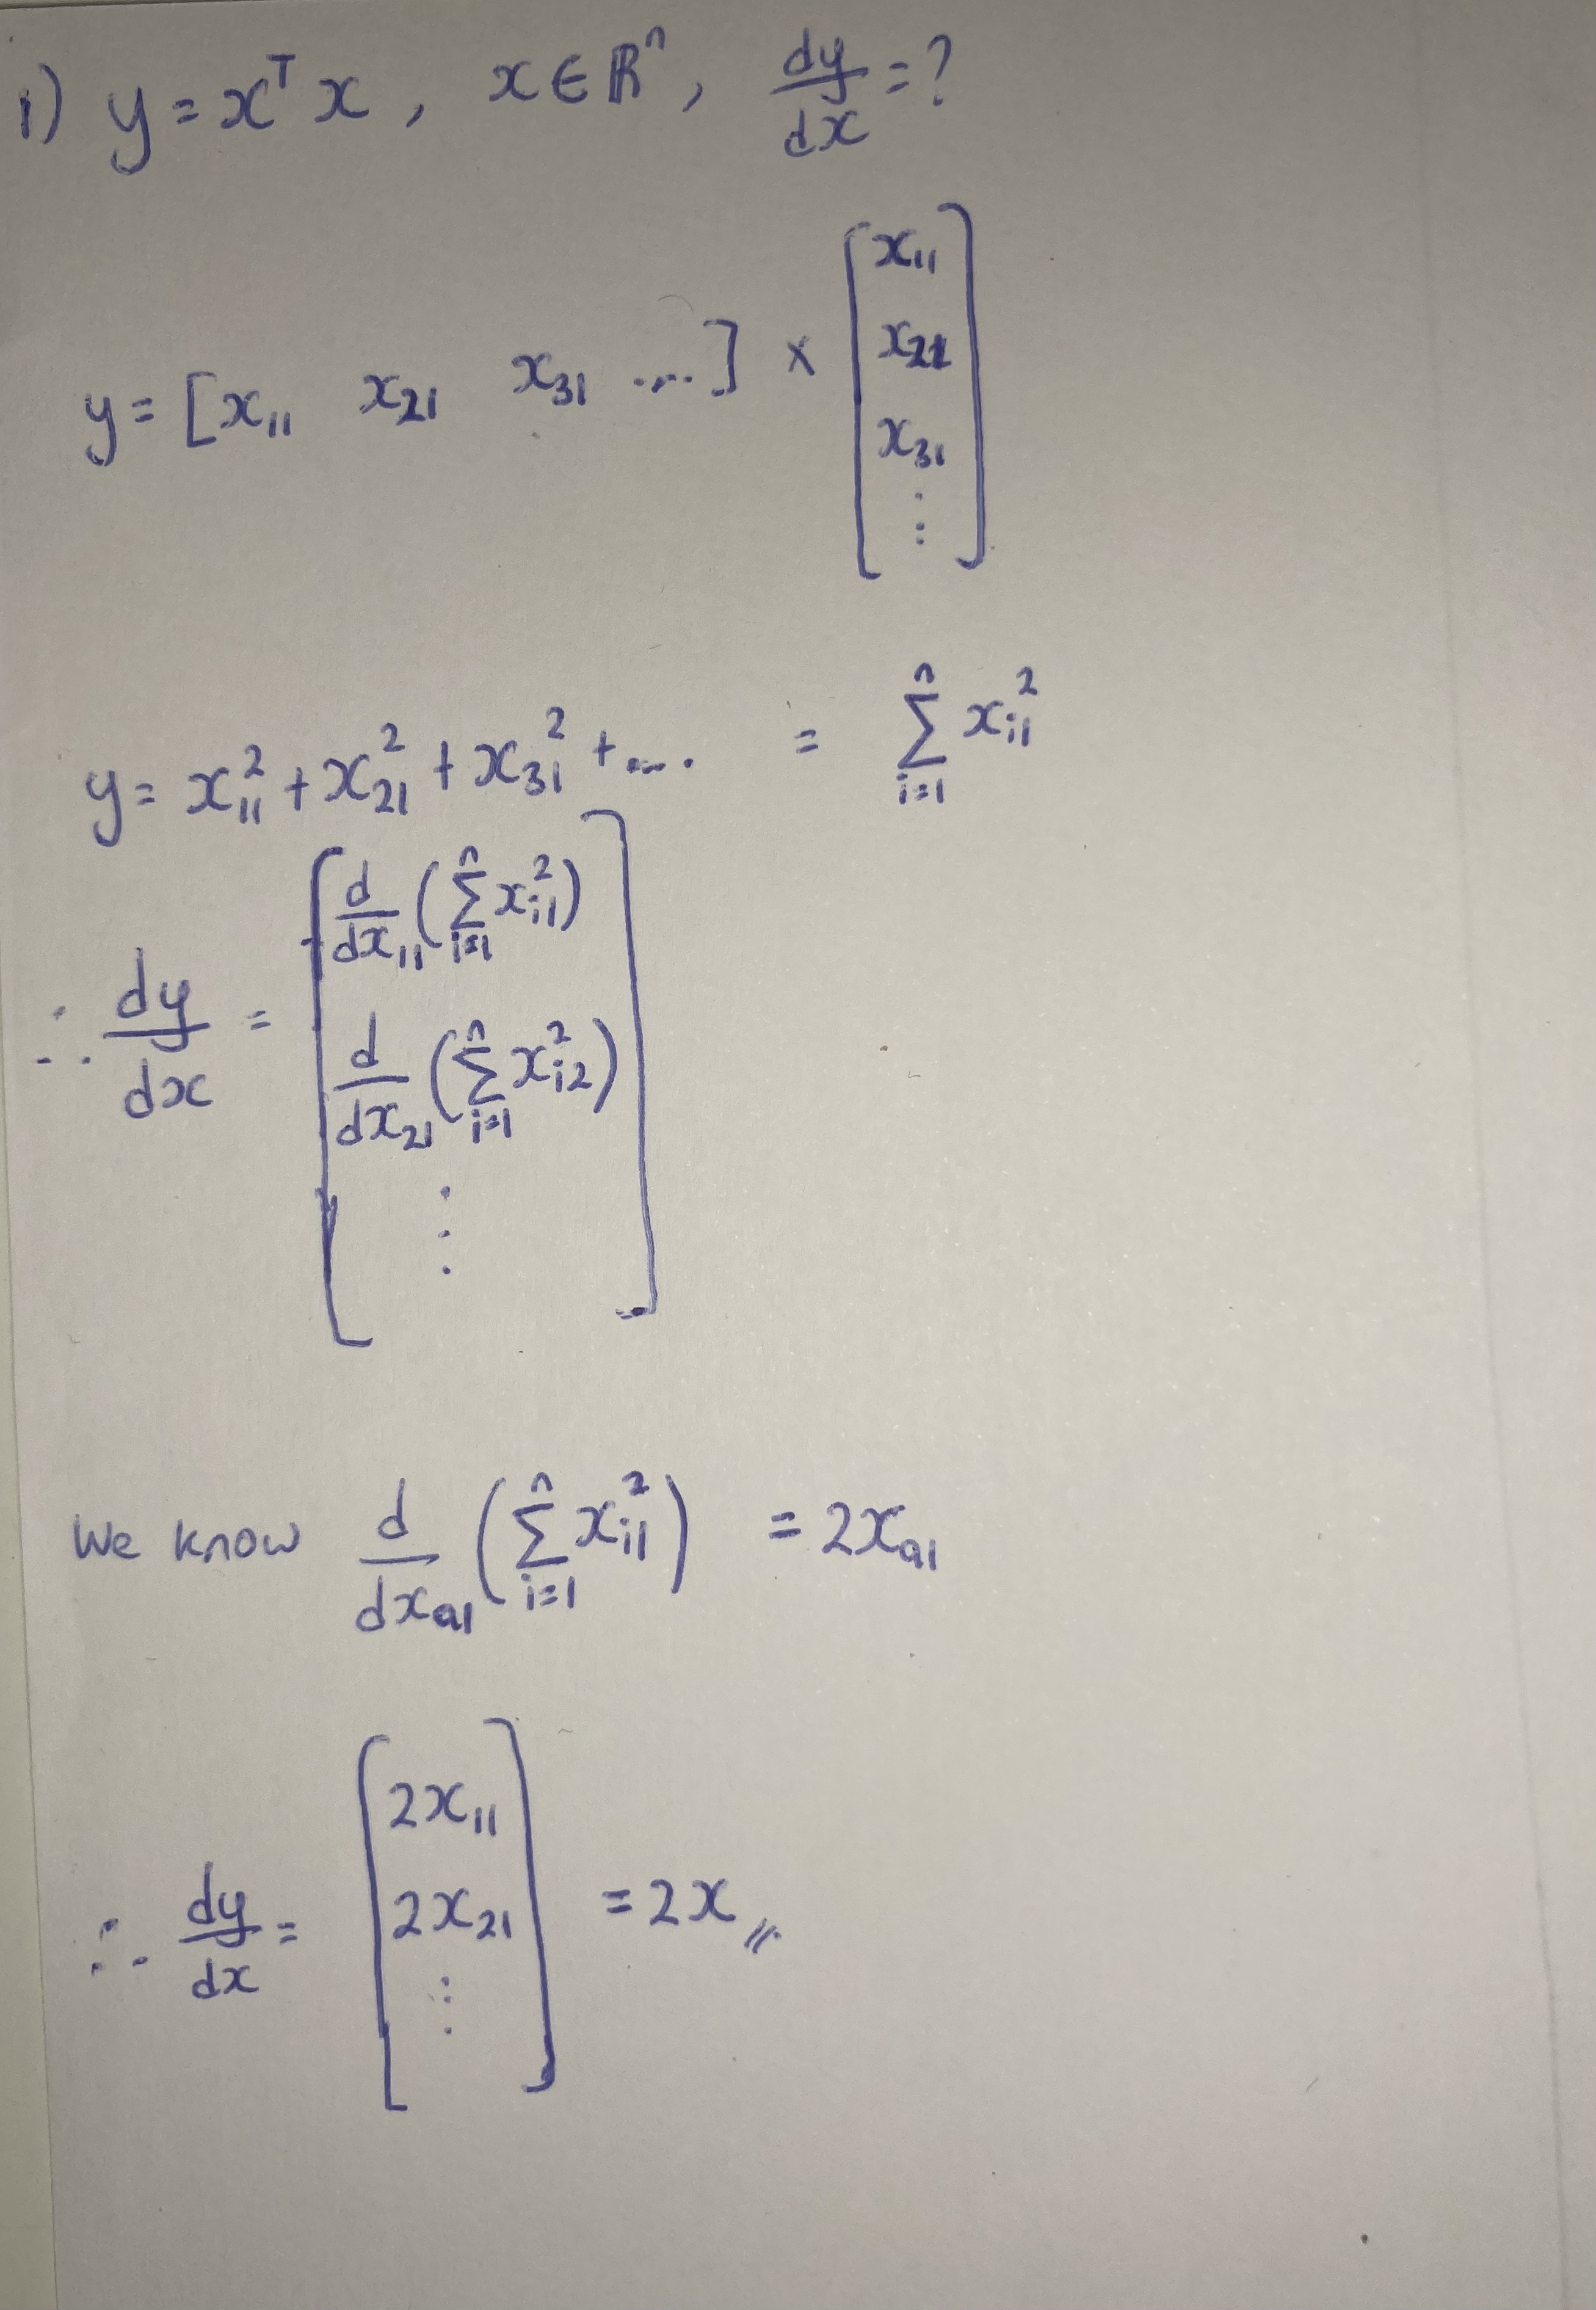 1) y = xᵀ x , x ∈ ℝⁿ , dy/dx = ?
y = [x₁₁ x₂₁ x₃₁ ....] × [x₁₁ x₂₁ x₃₁ ⋮]
y = x₁₁² + x₂₁² + x₃₁² + .... = ∑ᵢ₌₁ⁿ xᵢ₁²
∴ dy/dx = [d/dx₁₁ (∑ᵢ₌₁ⁿ xᵢ₁²) d/dx₂₁ (∑ᵢ₌₁ⁿ xᵢ₂²) ⋮]
We know d/dxₐ₁ (∑ᵢ₌₁ⁿ xᵢ₁²) = 2xₐ₁
∴ dy/dx = [2x₁₁ 2x₂₁ ⋮] = 2x //